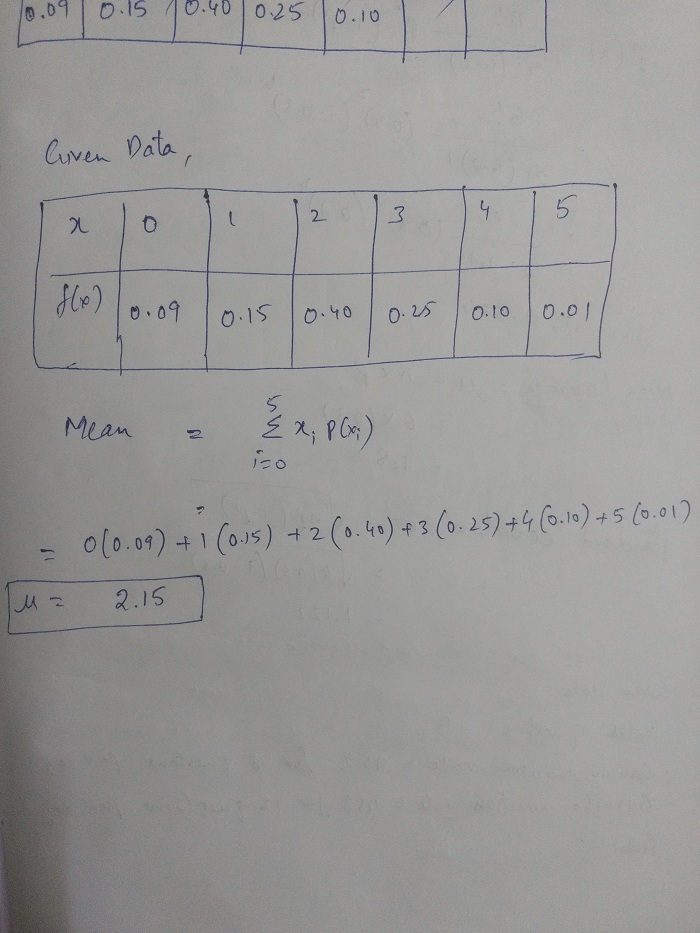 0.09 0.15 0.40 0.25 0.10
Given Data,
x 0 1 2 3 4 5
f(x) 0.09 0.15 0.40 0.25 0.10 0.01
Mean = 5 Σ i=0 xi P(xi)
= 0(0.09) + 1(0.15) + 2(0.40) + 3(0.25) + 4(0.10) + 5(0.01)
μ = 2.15